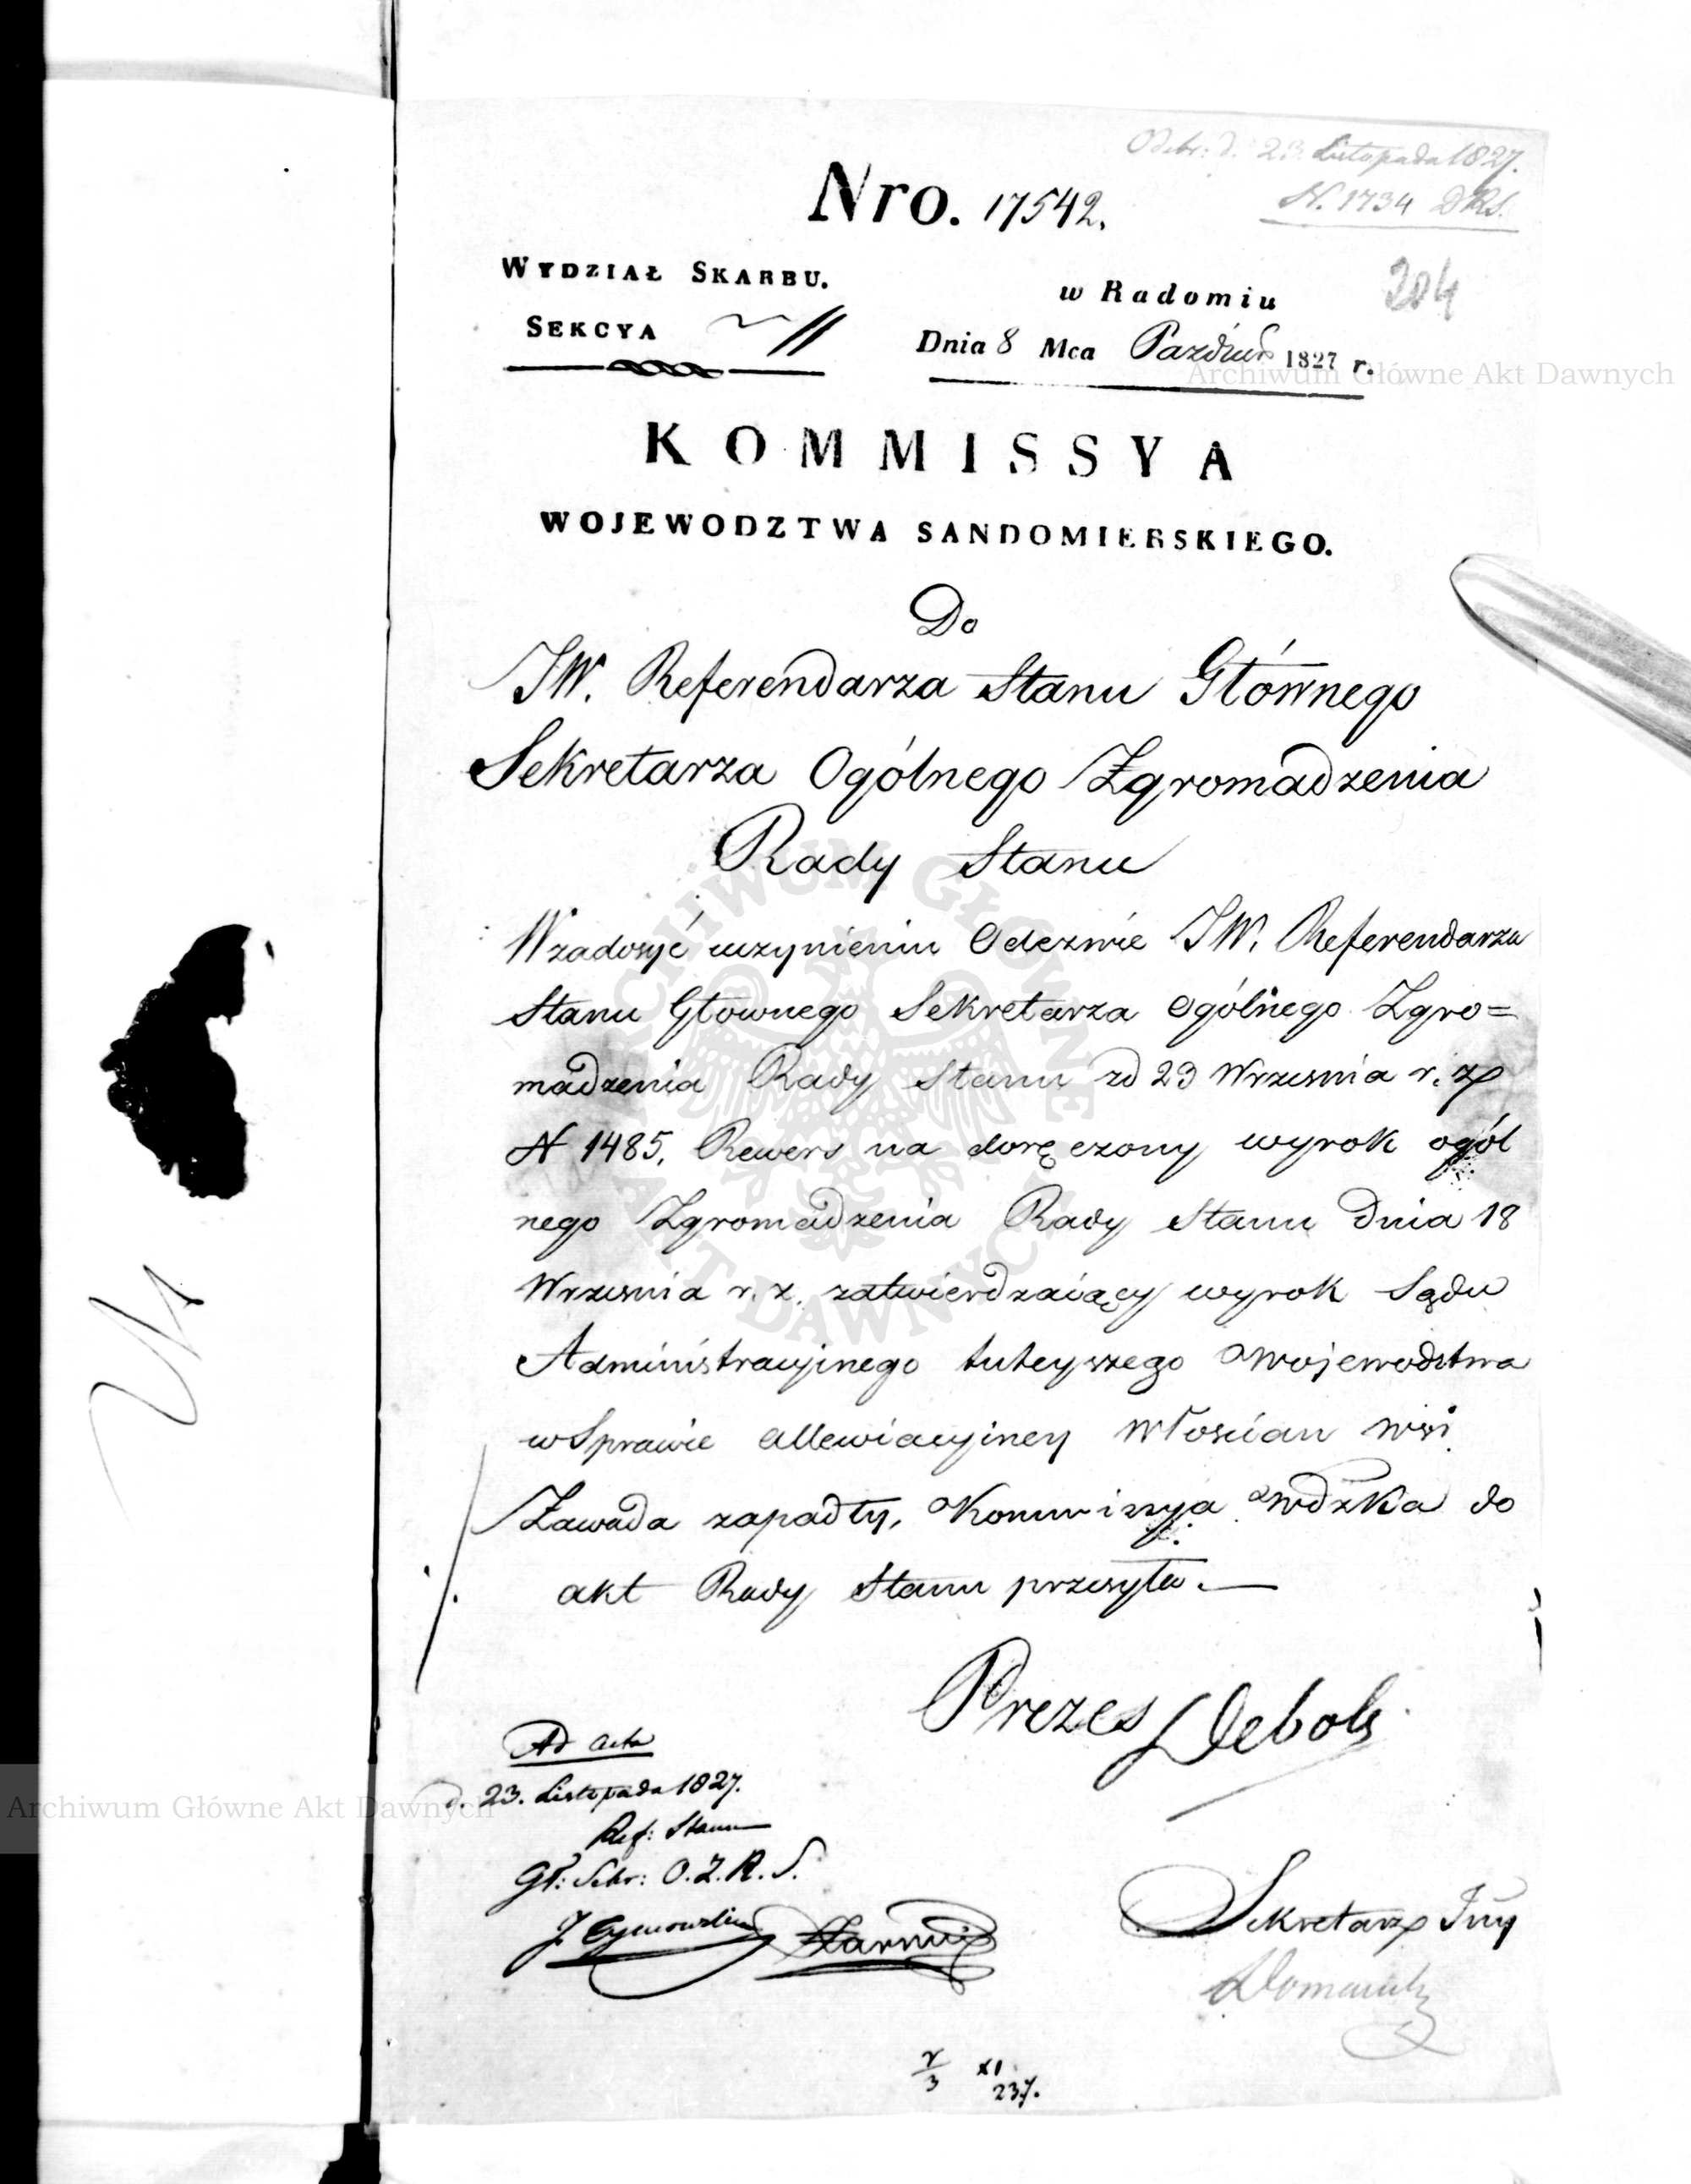 Odebr: d. 23. Listopada 1827.
N. 1734 DRS.
Nro. 17542.
204
WYDZIAŁ SKARBU.
w Radomiu
SEKCYA II
Dnia 8 Mca Paździer 1827 r.
Archiwum Główne Akt Dawnych
KOMMISSYA
WOJEWODZTWA SANDOMIERSKIEGO.
Do
JW. Referendarza Stanu Głównego
Sekretarza Ogólnego Zgromadzenia
Rady Stanu
Wzadosyć uczynieniu Odezwie JW. Referendarza
Stanu Głownego Sekretarza ogólnego Zgro=
madzenia Rady Stanu zd 29 Wrzesnia r. z
N 1485, Rewers na doręczony wyrok ogól
nego Zgromadzenia Rady Stanu dnia 18
Wrzesnia r. z. zatwierdzaiący wyrok Sądu
Administracyjnego tuteyszego Wojewodztwa
wSprawie allewiacyjney Włościan wsi
Zawada zapadły, Kommissya Wdzka do
akt Rady Stanu przesyła.—
Prezes Debols
Ad acta
d. 23. Listopada 1827.
Archiwum Główne Akt Dawnych
Ref: Stanu
Gł: Sekr: O. Z. R. S.
J.
Sekretarz Jny
XI
237.
ARCHIWUM GŁÓWNE AKT DAWNYCH